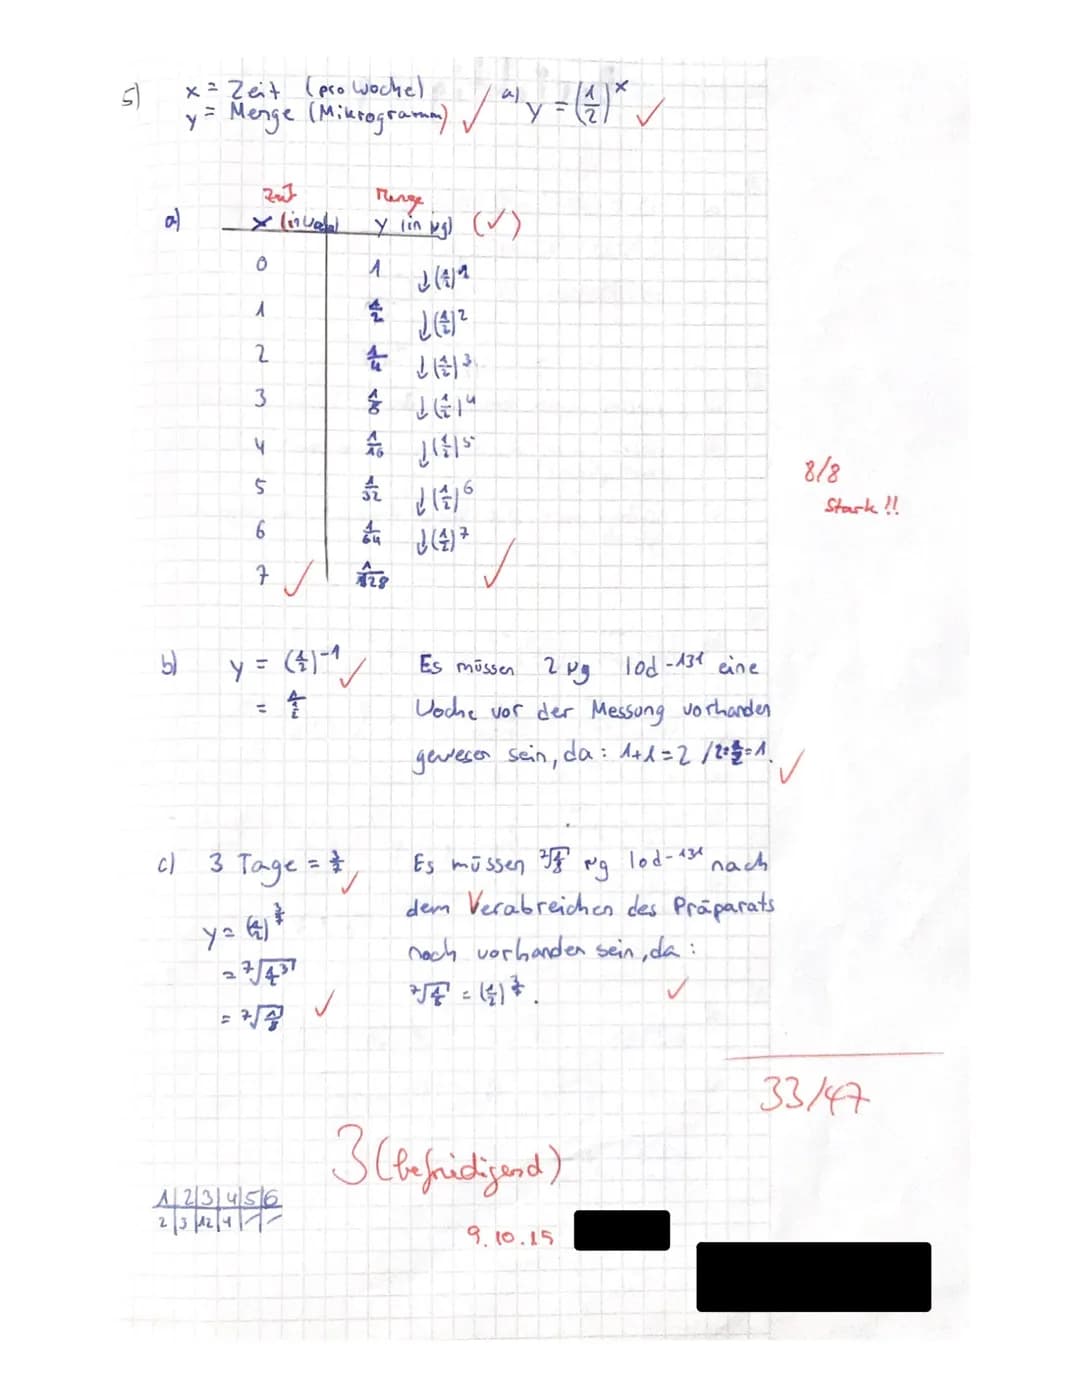 5) x = Zeit (pro Woche) ✓ a) y = (1/2)^x ✓
y = Menge (Mikrogramm)
Zeit Menge
a) x (in Woche) y (in µg) (✓)
0 1 ↓(1/2)^1
1 1/2 ↓(1/2)^2
2 1/4 ↓(1/2)^3
3 1/8 ↓(1/2)^4
4 1/16 ↓(1/2)^5
5 1/32 ↓(1/2)^6
6 1/64 ↓(1/2)^7
7 ✓ 1/128 ✓
8/8
Stark!!
b) y = (1/2)^-1 ✓ Es müssen 2 µg Iod-131 eine
= 1/(1/2) Woche vor der Messung vorhanden
gewesen sein, da: 1+1=2 /2·1/2=1. ✓
c) 3 Tage = 3/7 ✓ Es müssen ⁷√(1/8) µg Iod-131 nach
y = (1/2)^(3/7) dem Verabreichen des Präparats
= ⁷√(1/2^3) noch vorhanden sein, da:
= ⁷√(1/8) ✓ ⁷√(1/8) = (1/2)^(3/7). ✓
33/47
3 (befridigend)
1|2|3|4|5|6
2|3|12|4|-|-
9.10.15